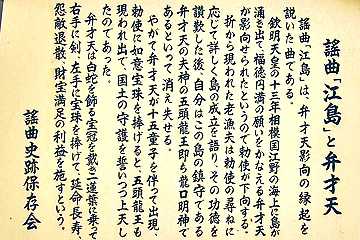 謡曲「江島」と弁才天
謡曲「江島」は、弁才天影向の縁起を
説いた曲である。
欽明天皇の十三年相模国江野の海上に島が
涌き出て、福徳円満の願いをかなえる弁才天
が影向せられたというので勅使が下向する。
折から現われた老漁夫は勅使の尋ねに
応じて詳しく島の成立を語り、その功徳を
讃歎した後、自分はこの島の鎮守である
弁才天の夫神の五頭龍王即ち龍口明神で
あるといって消え失せる。
やがて弁才天が十五童子を伴って出現、
勅使に如意宝珠を捧げると、五頭龍王も
現われ出て、国土の守護を誓いつつ上天し
たのであった。
弁才天は白蛇を飾る宝冠を戴き二蓮葉に乗って
右手に剣、左手に宝珠を捧げて、延命長寿、
怨敵退散、財宝満足の利益を施すという。
謡曲史跡保存会